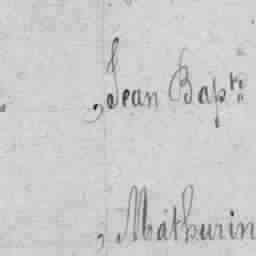 , Jean Bapte
, Mathurin